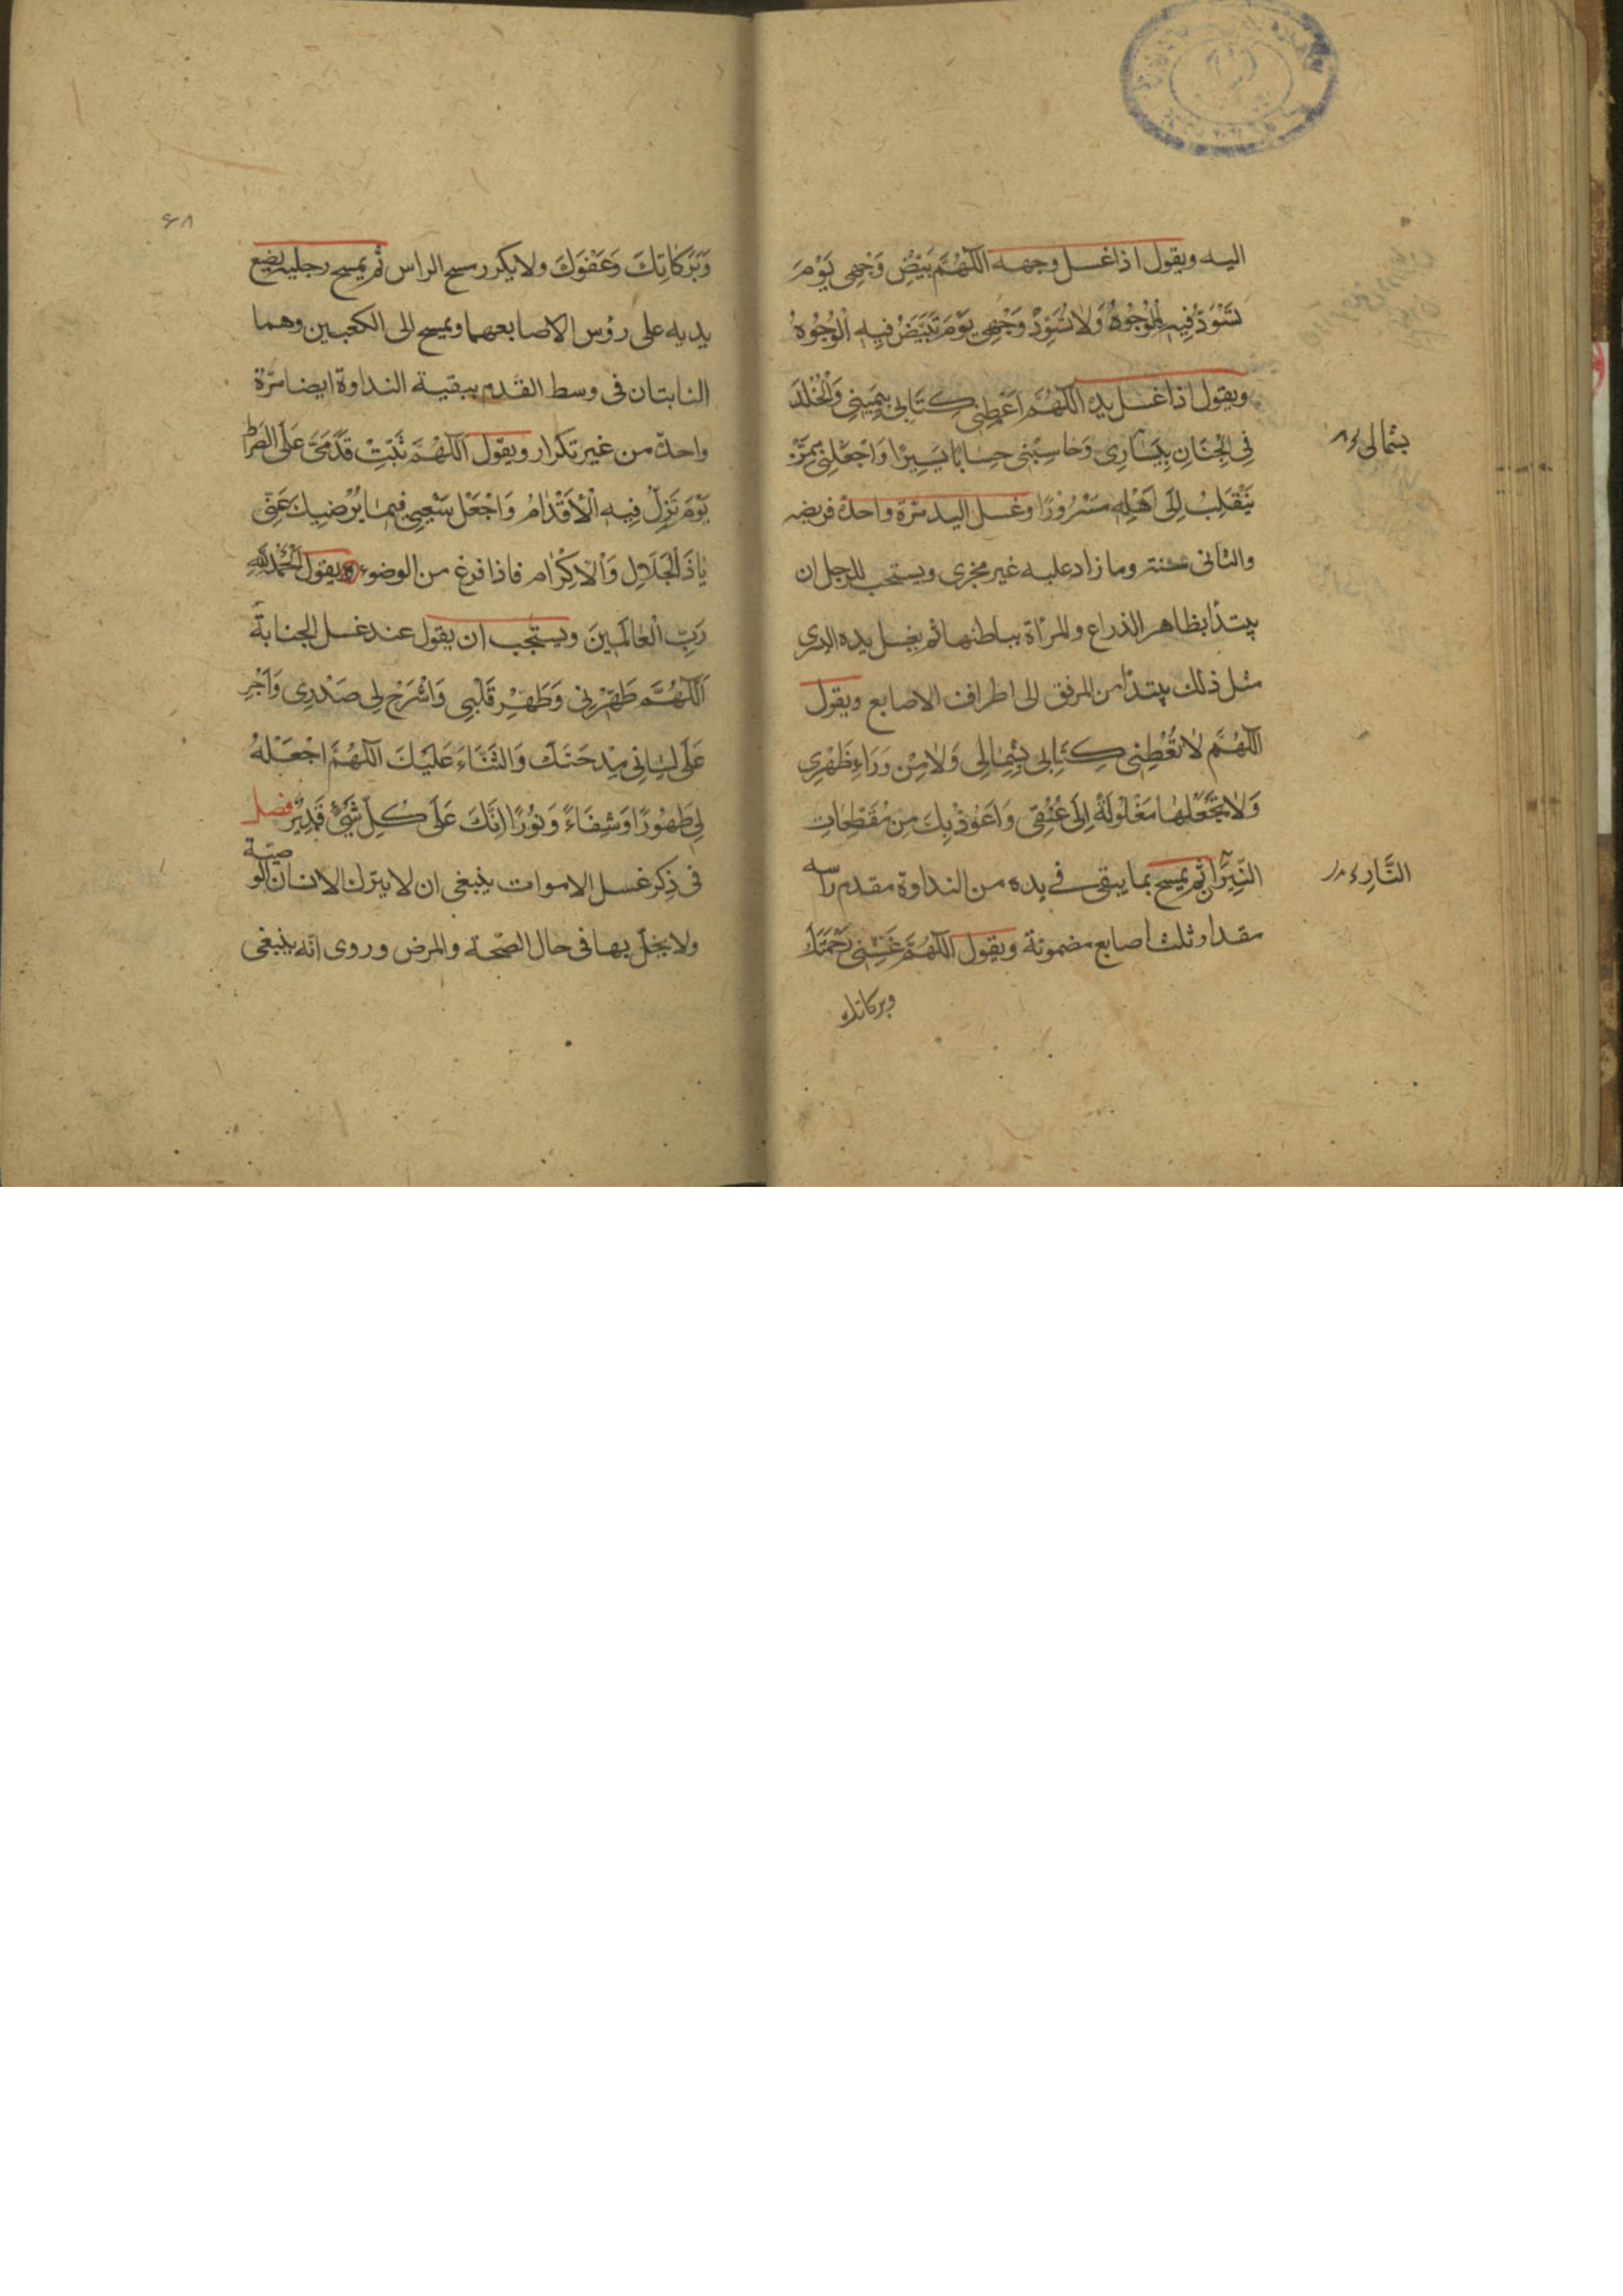 اليه ويقول اذا غسل وجهه اَللّهُمَّ بَيِّضْ وَجْهِي يَوْمَ
تَسْوَدُّ فِيهِ الْوُجُوهُ وَلَا تُسَوِّدْ وَجْهِي يَوْمَ تَبْيَضُّ فِيهِ الْوُجُوهُ
ويقول اذا غسل يده اَللّهُمَّ اَعْطِنِي كِتَابِي بِيَمِينِي وَالْخُلْدَ
فِي الْجِنَانِ بِيَسَارِي وَحَاسِبْنِي حِسَابًا يَسِيرًا وَاجْعَلْنِي مِمَّنْ
بشمالى
يَنْقَلِبُ اِلَى اَهْلِهِ مَسْرُورًا وغسل اليد مرّة واحدة فريضه
والثانى سنته وما زاد عليه غير مجزى ويستحب للرجل ان
يبتدأ بظاهر الذراع والمرأة بباطنها ثم يغسل يده اليسرى
مثل ذلك يبتدأ من المرفق الى اطراف الاصابع ويقول
اَللّهُمَّ لَا تُعْطِنِي كِتَابِي بِشِمَالِي وَلَا مِنْ وَرَاءِ ظَهْرِي
وَلَا تَجْعَلْهَا مَغْلُولَةً اِلَى عُنُقِي وَاَعُوذُ بِكَ مِنْ مُقَطِّعَاتِ
النِّيرَانِ ثم يمسح بما يبقى في يده من النداوة مقدم راسه
النَّارِ
مقدار ثلث اصابع مضمونة ويقول اَللّهُمَّ غَشِّنِي رَحْمَتَكَ
وبركاتك
۶۸
وَبَرَكَاتِكَ وَعَفْوَكَ ولا يكرر مسح الراس ثم يمسح رجليه يضع
يديه على رؤس الاصابعهما ويمسح الى الكعبين وهما
النابتان فى وسط القدم ببقية النداوة ايضا مرّة
واحدة من غير تكرار ويقول اَللّهُمَّ ثَبِّتْ قَدَمَيَّ عَلَى الصِّرَاط
يَوْمَ تَزِلُّ فِيهِ الْاَقْدَامُ وَاجْعَلْ سَعْيِي فِيمَا يُرْضِيكَ عَنِّي
يَا ذَا الْجَلَالِ وَالْاِكْرَامِ فاذا فرغ من الوضوء ويقول اَلْحَمْدُ لِلّهِ
رَبِّ الْعَالَمِينَ ويستحب ان يقول عند غسل الجنابة
اَللّهُمَّ طَهِّرْنِي وَطَهِّرْ قَلْبِي وَاشْرَحْ لِي صَدْرِي وَاَجْرِ
عَلَى لِسَانِي مِدْحَتَكَ وَالثَّنَاءَ عَلَيْكَ اَللّهُمَّ اجْعَلْهُ
لِي طَهُورًا وَشِفَاءً وَنُورًا اِنَّكَ عَلَى كُلِّ شَيْءٍ قَدِيرٌ فصل
فى ذِكر غسل الاموات ينبغى ان لا يترك الانسان الوصيّة
ولا يخلّ بها فى حال الصّحة والمرض وروى انّه ينبغى